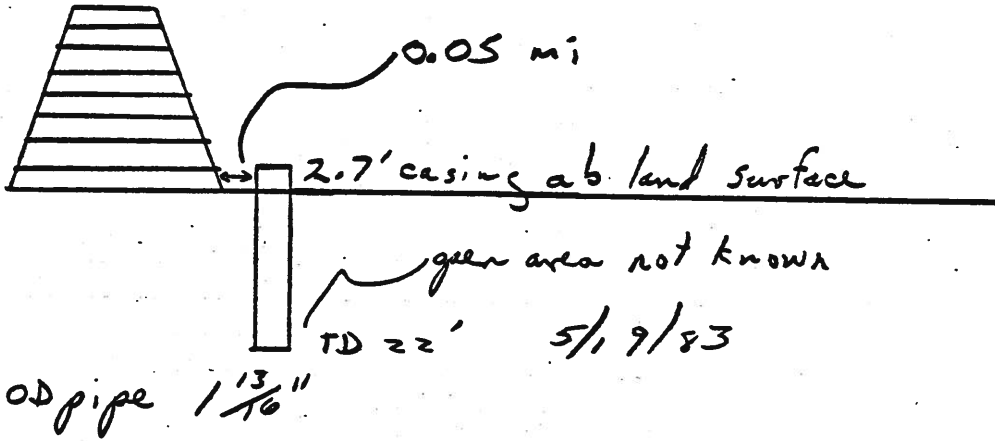 0.05 mi
2.7' casing ab land surface
area not known
TD 22' 5/19/83
OD pipe 1 13/16"